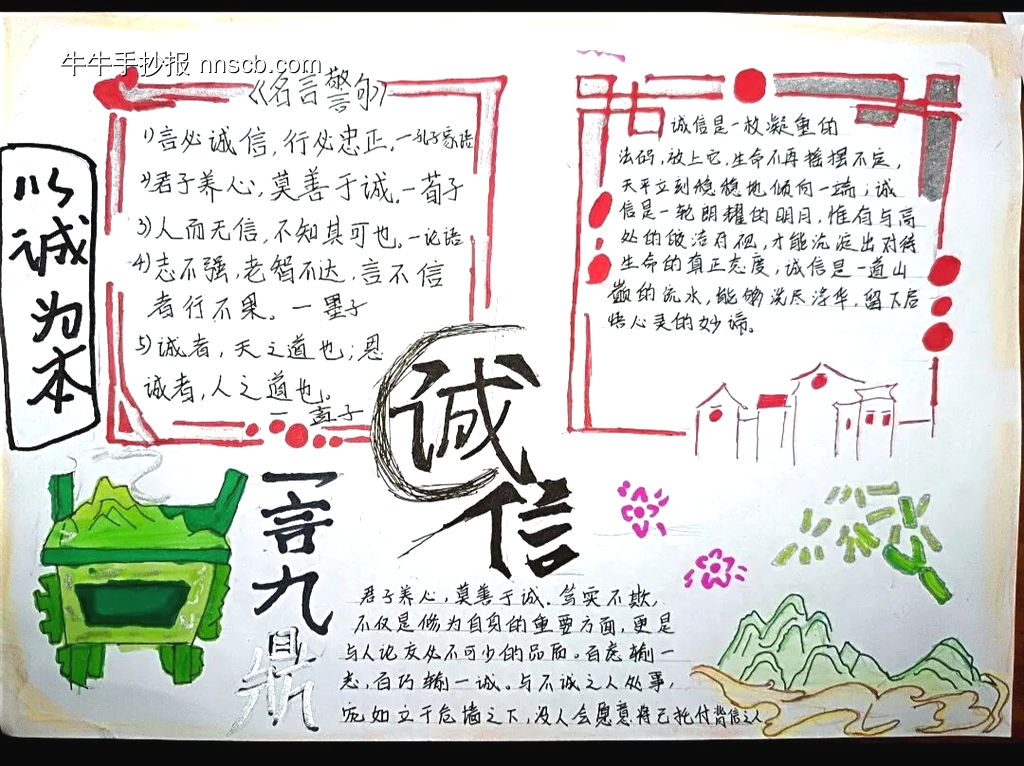 牛牛手抄报 nnscb.com
以诚为本
《名言警句》
1)言必诚信,行必忠正。—孔子家语
2)君子养心,莫善于诚。—荀子
3)人而无信,不知其可也。—论语
4)志不强,老智不达,言不信
者行不果。—墨子
5)诚者,天之道也;思
诚者,人之道也。
—孟子
诚信是一枚凝重的
法码,放上它,生命不再摇摆不定,
天平立刻稳稳地倾向一端;诚
信是一轮朗耀的明月,惟有与高
处的皎洁对视,才能沉淀出对待
生命的真正态度,诚信是一道山
巅的流水,能够洗尽浮华,留下启
悟心灵的妙谛。
诚信
一言九鼎
君子养心,莫善于诚。笃实不欺,
不仅是修为自身的重要方面,更是
与人论交处不可少的品质。百虑输一
忘,百巧输一诚。与不诚之人处事,
宛如立于危墙之下,没人会愿意将己托付背信之人